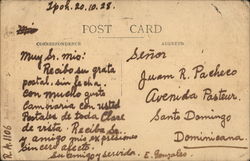 Ipoh. 20.10.28.
POST CARD
CORRESPONDENCE
ADDRESS
Muy Sr. mio.
Recibo su grata
postal sin fecha.
Con mucho gusto
Cambiaria con usted
Postales de toda Clase
de vista. Reciba Sr.
y amigo mis expresiones
sincero afecto.
Su amigo y servidor. E. Gonzales.
Señor
Juan R. Pacheco
Avenida Pasteur.
Santo Domingo
Dominicana.